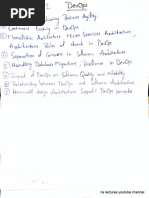 DevOps
Business Agility
Continuous Testing in DevOps
Architecture Micro Services Architecture
Architecture Rules of thumb in DevOps
Separation of Concerns in Software Architecture
Handling Database Migrations, Resilience in DevOps
Impact of DevOps on Software Quality and Reliability
Relationship between DevOps and Software Architecture
design Architecture Support DevOps principles
ns lectures youtube channel